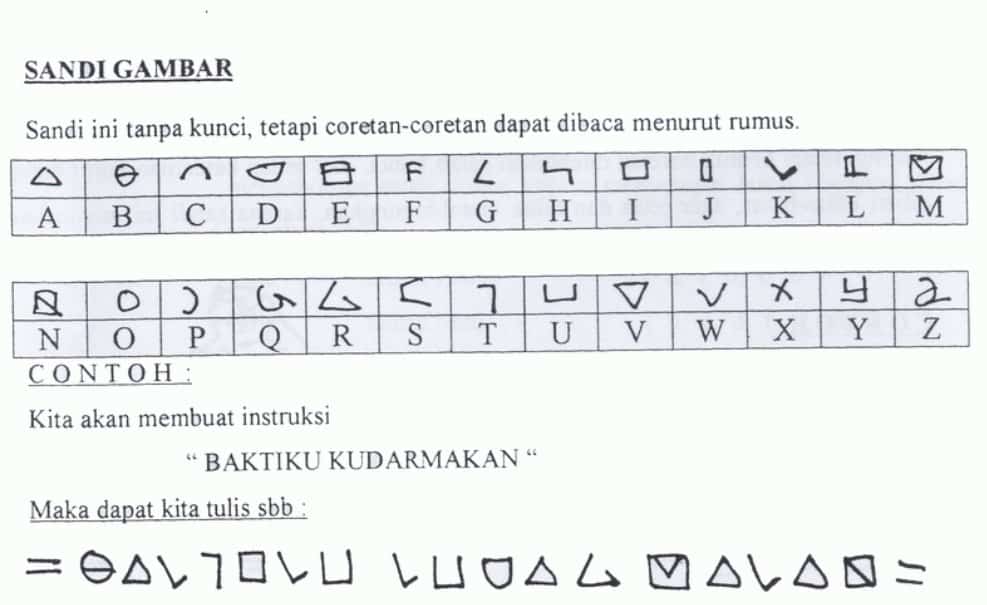 SANDI GAMBAR
Sandi ini tanpa kunci, tetapi coretan-coretan dapat dibaca menurut rumus.
A B C D E F G H I J K L M
N O P Q R S T U V W X Y Z
CONTOH :
Kita akan membuat instruksi
“ BAKTIKU KUDARMAKAN “
Maka dapat kita tulis sbb :